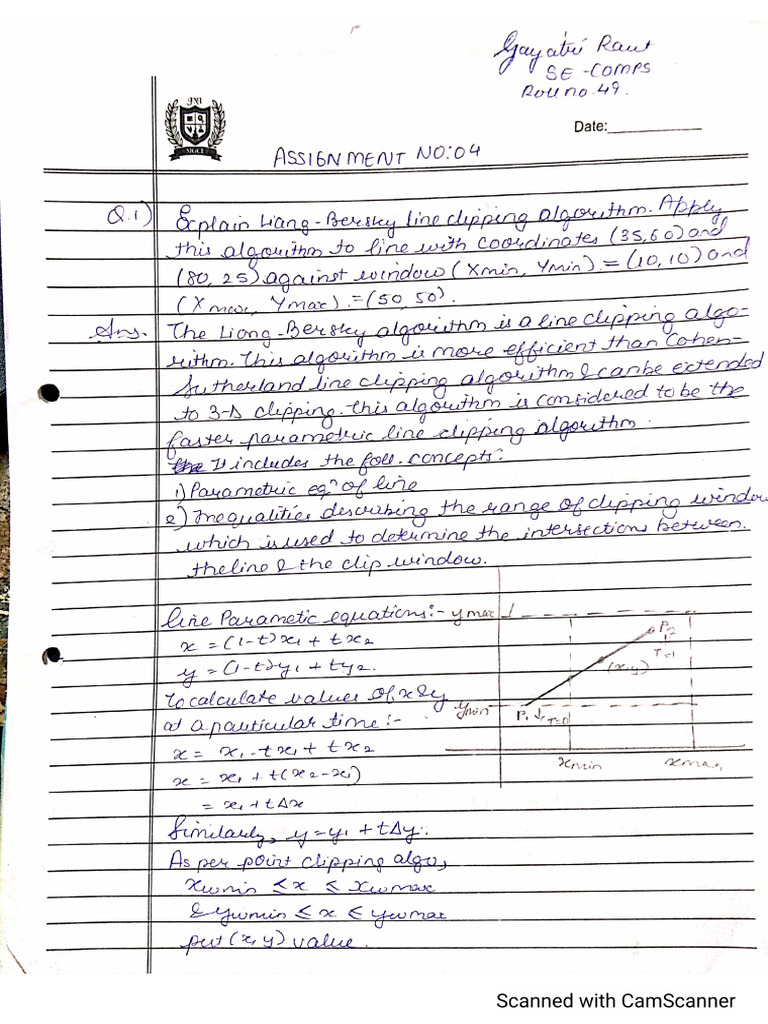 Gayatri Raut
SE-COMPS
Roll no. 49.
JNJ
MGCL
Date:
ASSIGNMENT NO:04
Q.1) Explain Liang-Bersky line clipping algorithm. Apply
this algorithm to line with coordinates (35,60) and
(80, 25) against window (Xmin, Ymin) = (10,10) and
(Xmax, Ymax) = (50,50).
Ans. The Liang-Bersky algorithm is a line clipping algo-
rithm. This algorithm is more efficient than Cohen-
Sutherland line clipping algorithm & can be extended
to 3-D clipping. This algorithm is considered to be the
faster parametric line clipping algorithm.
It includes the foll. concepts:
1) Parametric eqn of line
2) Inequalities describing the range of clipping window
which is used to determine the intersections between
the line & the clip window.
Line Parametic equations:-
x = (1-t)x1 + tx2
y = (1-t)y1 + ty2.
To calculate values of x & y
at a particular time:-
x = x1 - tx1 + tx2
x = x1 + t(x2-x1)
= x1 + tΔx
Similarly, y = y1 + tΔy.
As per point clipping algo,
xwmin ≤ x ≤ xwmax
& ywmin ≤ x ≤ ywmax
put (x, y) value.
ymax
P2
T=1
(x,y)
ymin
P1
T=0
xmin
xmax
Scanned with CamScanner